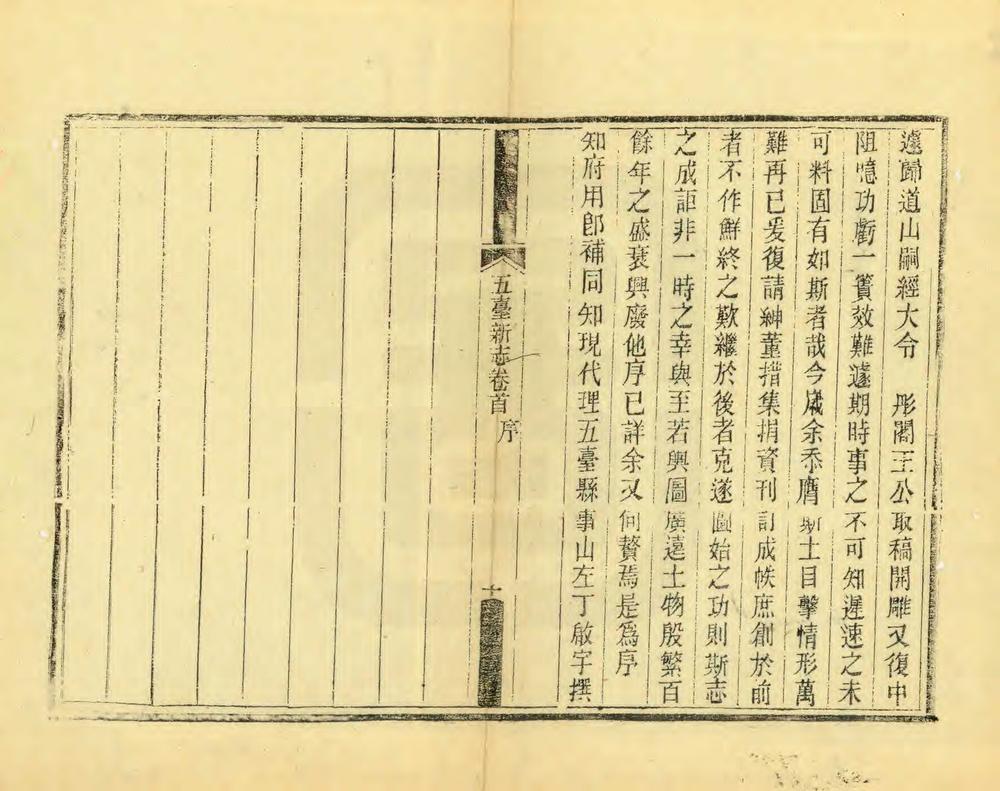 遽歸道山嗣經大令　彤閣王公取稿開雕又復中
阻噫功虧一簣效難遽期時事之不可知遲速之未
可料固有如斯者哉今歲余忝膺斯土目擊情形萬
難再已爰復請紳董措集捐資刊訂成帙庶創於前
者不作鮮終之歎繼於後者克遂圖始之功則斯志
之成詎非一時之幸與至若輿圖廣遠土物殷繁百
餘年之盛衰興廢他序已詳余又何贅焉是為序
知府用卽補同知現代理五臺縣事山左丁啟宇撰
五臺新志卷首
序
十